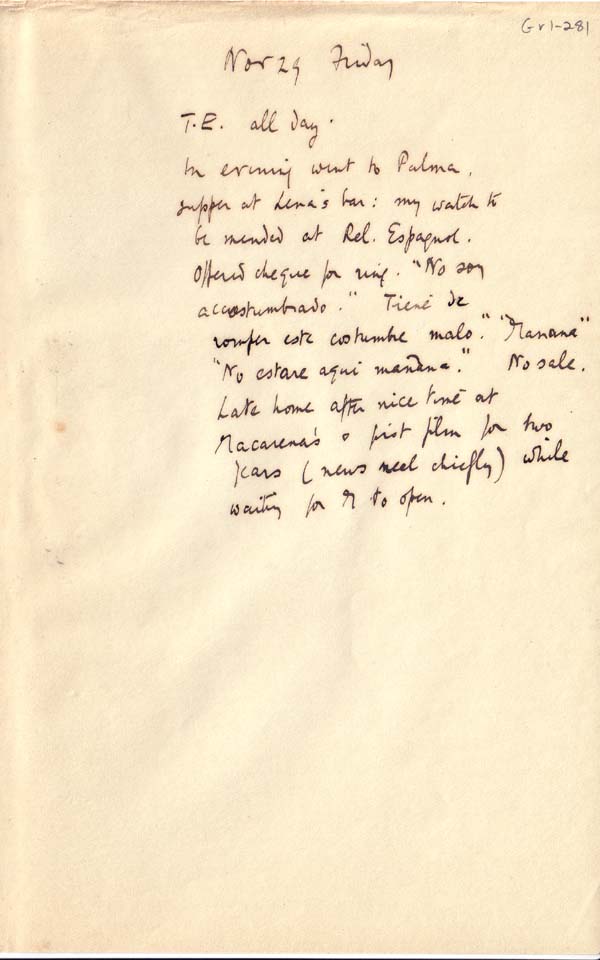 Gr1-281
Nov 29 Friday
T.E. all day.
In evening went to Palma,
supper at Lena's bar: my watch to
be mended at Rel. Espagnol.
Offered cheque for ring. "No soy
accostumbrado." Tiene de
romper este costumbre malo." "Manana"
"No estare aqui manana." No sale.
Late home after nice time at
Macarena's & first film for two
years (news reel chiefly) while
waiting for M to open.